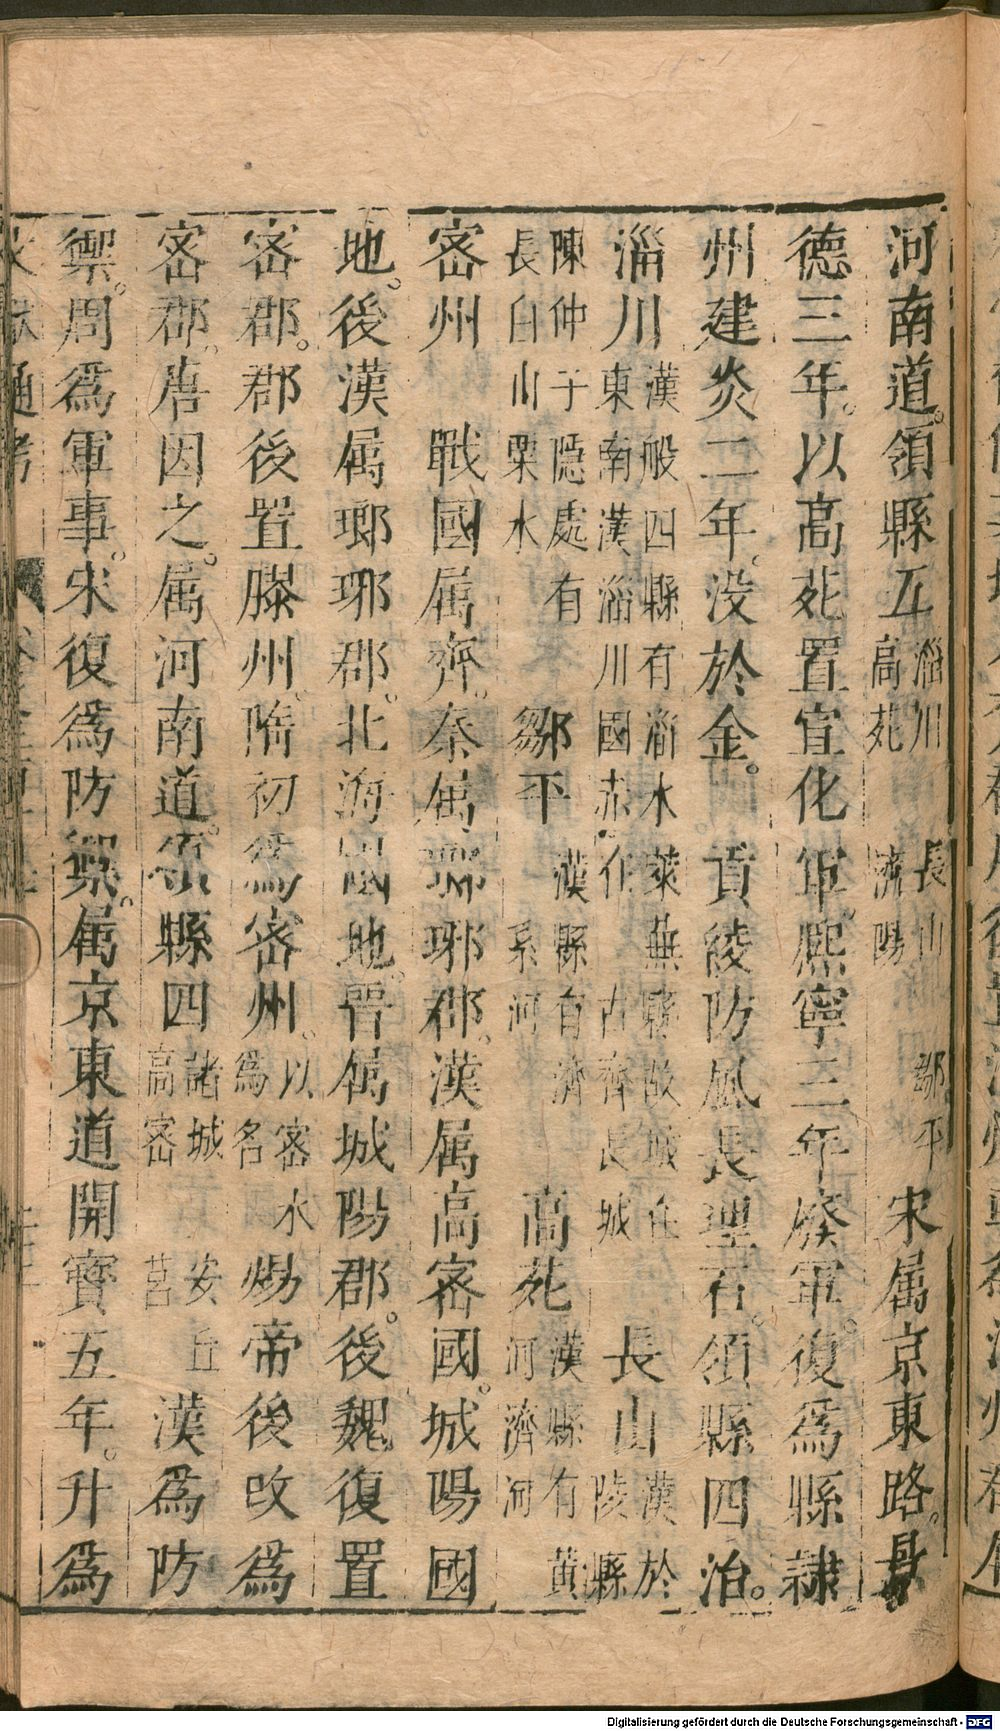 河南道。領縣五淄川長山鄒平高苑濟陽宋属京東路。景
德三年。以高苑置宣化軍。熙寧三年廢軍。復為縣隷
州建炎二年。没於金。貢綾防風長理石。領縣四治。
淄川漢般四縣有淄水萊蕪縣故城在東南漢淄川國赤在古齊長城長山漢於陵縣
陳仲子隱處有長白山栗水鄒平漢縣有濟系河高苑漢縣有黄河濟河
密州 戰國属齊。秦属瑯琊郡。漢属高密國。城陽國
地。後漢属瑯琊郡。北海國地。晉属城陽郡。後魏復置
密郡。郡後置膠州。隋初為密州。以密水為名煬帝後改為
密郡。唐因之。属河南道。領縣四諸城安丘高密莒漢為防
禦。周為軍事。宋復為防禦。属京東道開寶五年。升為
文獻通考
Digitalisierung gefördert durch die Deutsche Forschungsgemeinschaft - DFG